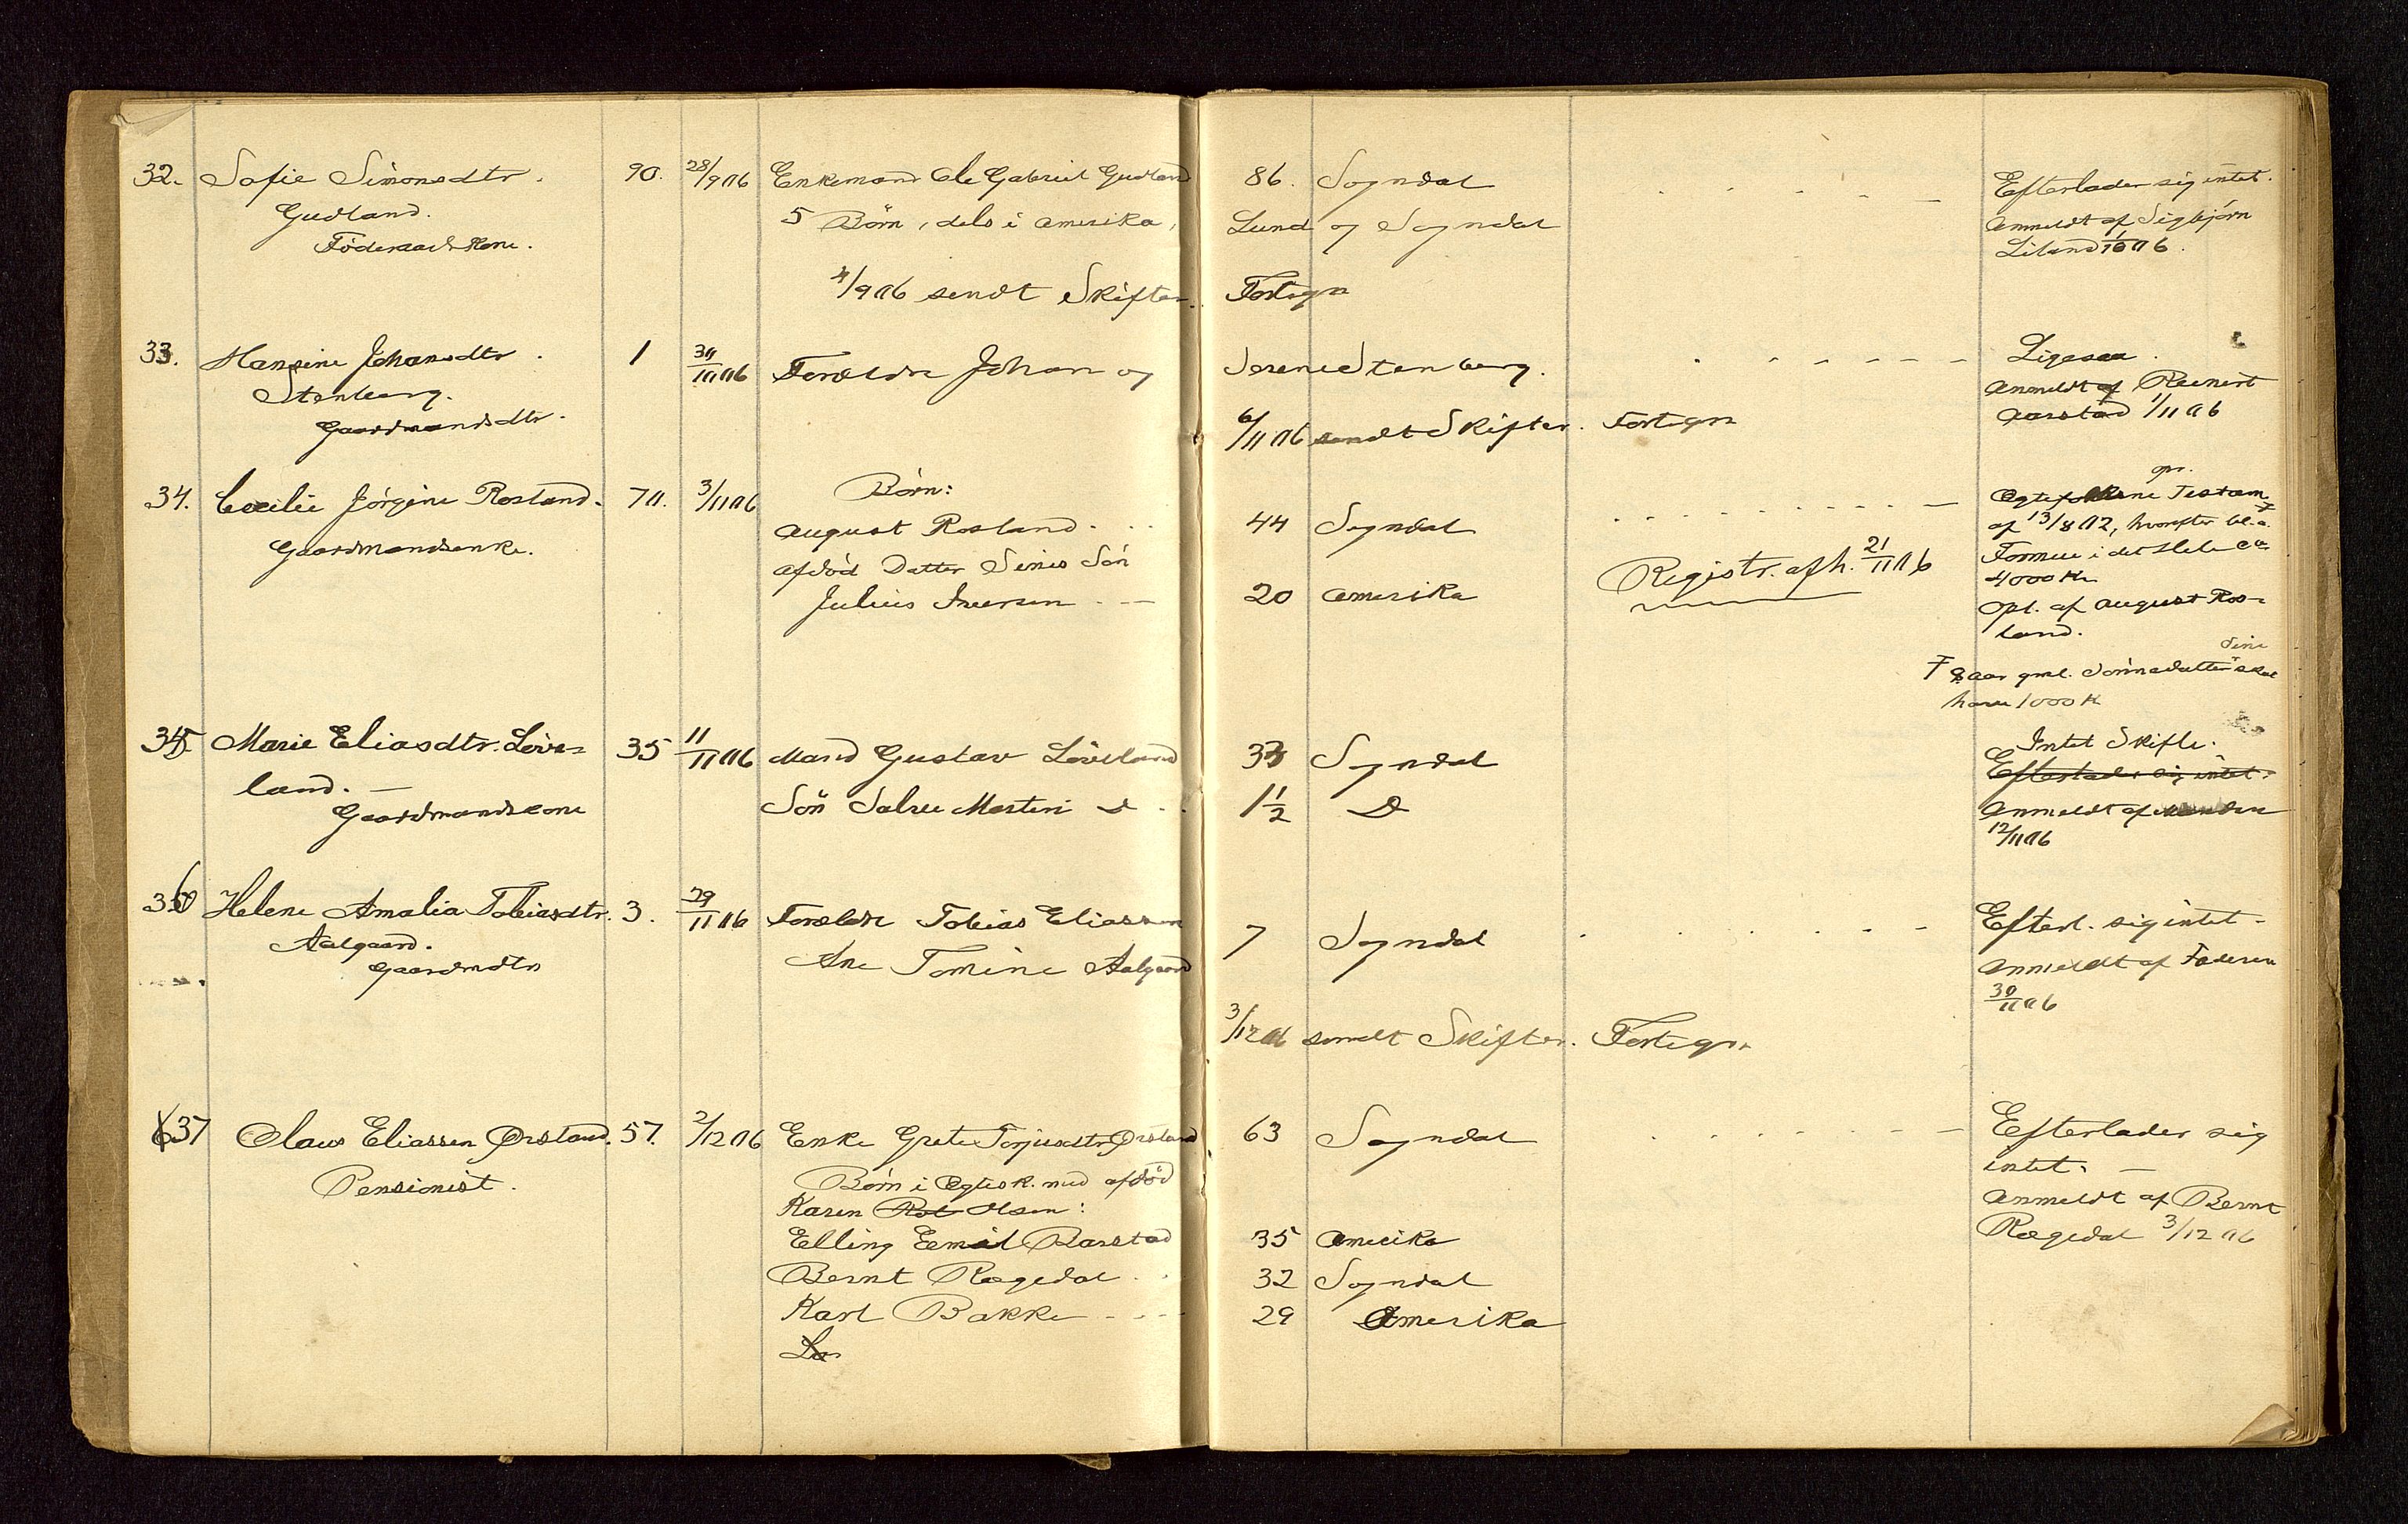 32. Sofie Simonsdtr. 90. 28/9 06 Enkemand Ole Gabriel Gudland 86. Sogndal Efterlader sig intet.
Gudland. 5 Börn, dels i Amerika, Lund og Sogndal Anmeldt af Sigbjörn
Föderaadskone. Liland 1/10 06.
4/9 06 sendt Skifter. Fortegn
33. Hansine Johansdtr. 1 30/10 06 Foreldre Johan og Serene Stenberg. Ligesaa.
Stenberg. Anmeldt af Reinert
Gaardmandsdtr. 6/11 06 sendt Skifter. Fortegn Aarstad 1/11 06
34. Cecilie Jörgine Rosland. 70. 3/11 06 Börn: opr.
Ægtefolkene Testam
Gaardmandsenke. August Rosland 44 Sogndal af 13/8 02, hvorefter bl. a.
afdöd Datter Sines Sön Registr. afh. 21/11 06 Formue i det Hele ca
Julius Iversen 20 Amerika 4000 Kr
Opl. af August Ros-
land.
Sine
8 aar gml. Sönnedatter skal
have 1000 K
35. Marie Eliasdtr. Löve- 35 11/11 06 Mand Gustav Löveland 37 Sogndal Intet Skifte.
land. Efterlader sig intet.
Gaardmandskone Sön Salve Martin D 1 1/2 D Anmeldt af Manden
12/11 06
36 Helene Amalia Tobiasdtr. 3. 29/11 06 Foreldre Tobias Eliassen 7 Sogndal Efterl. sig intet.
Aalgaard. Ane Tomine Aalgaard Anmeldt af Faderen
Gaardmdtr 30/11 06
3/12 06 sendt Skifter. Fortegn.
37 Olaus Eliassen Ørsland. 57. 2/12 06 Enke Grete Torjusdtr Ørsland 63 Sogndal Efterlader sig
Pensionist. Börn i Ægtesk. med afdöd intet.
Karen Rol Olsen: Anmeldt af Bernt
Elling Emil Barstad 35 Amerika Rægedal 3/12 06
Bernt Rægedal 32 Sogndal
Karl Bakke 29 Amerika